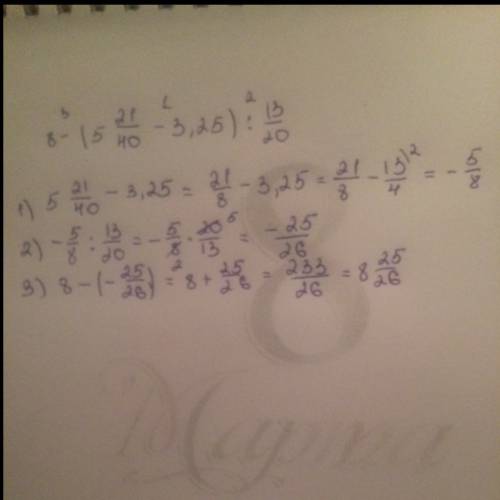 3 1 2
8 - (5 21/40 - 3,25) : 13/20
1) 5 21/40 - 3,25 = 21/8 - 3,25 = 21/8 - 13/4 ^2 = - 5/8
2) - 5/8 : 13/20 = - 5/8 · 20/13 ^5 = -25/26
2
3) 8 - (- 25/26) = 8 + 25/26 = 233/26 = 8 25/26
8
Марта